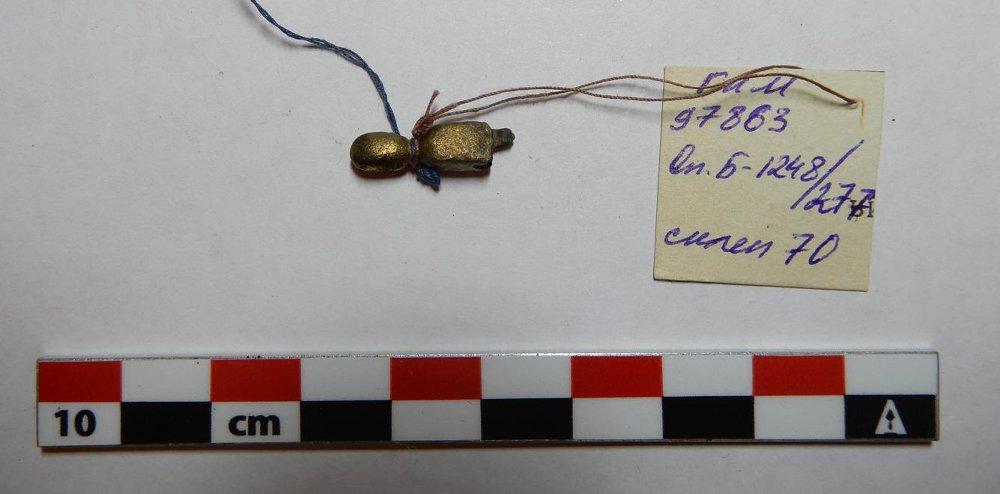 ГИМ
97863
Оп. Б-1248/
277
склеп 70
10 cm